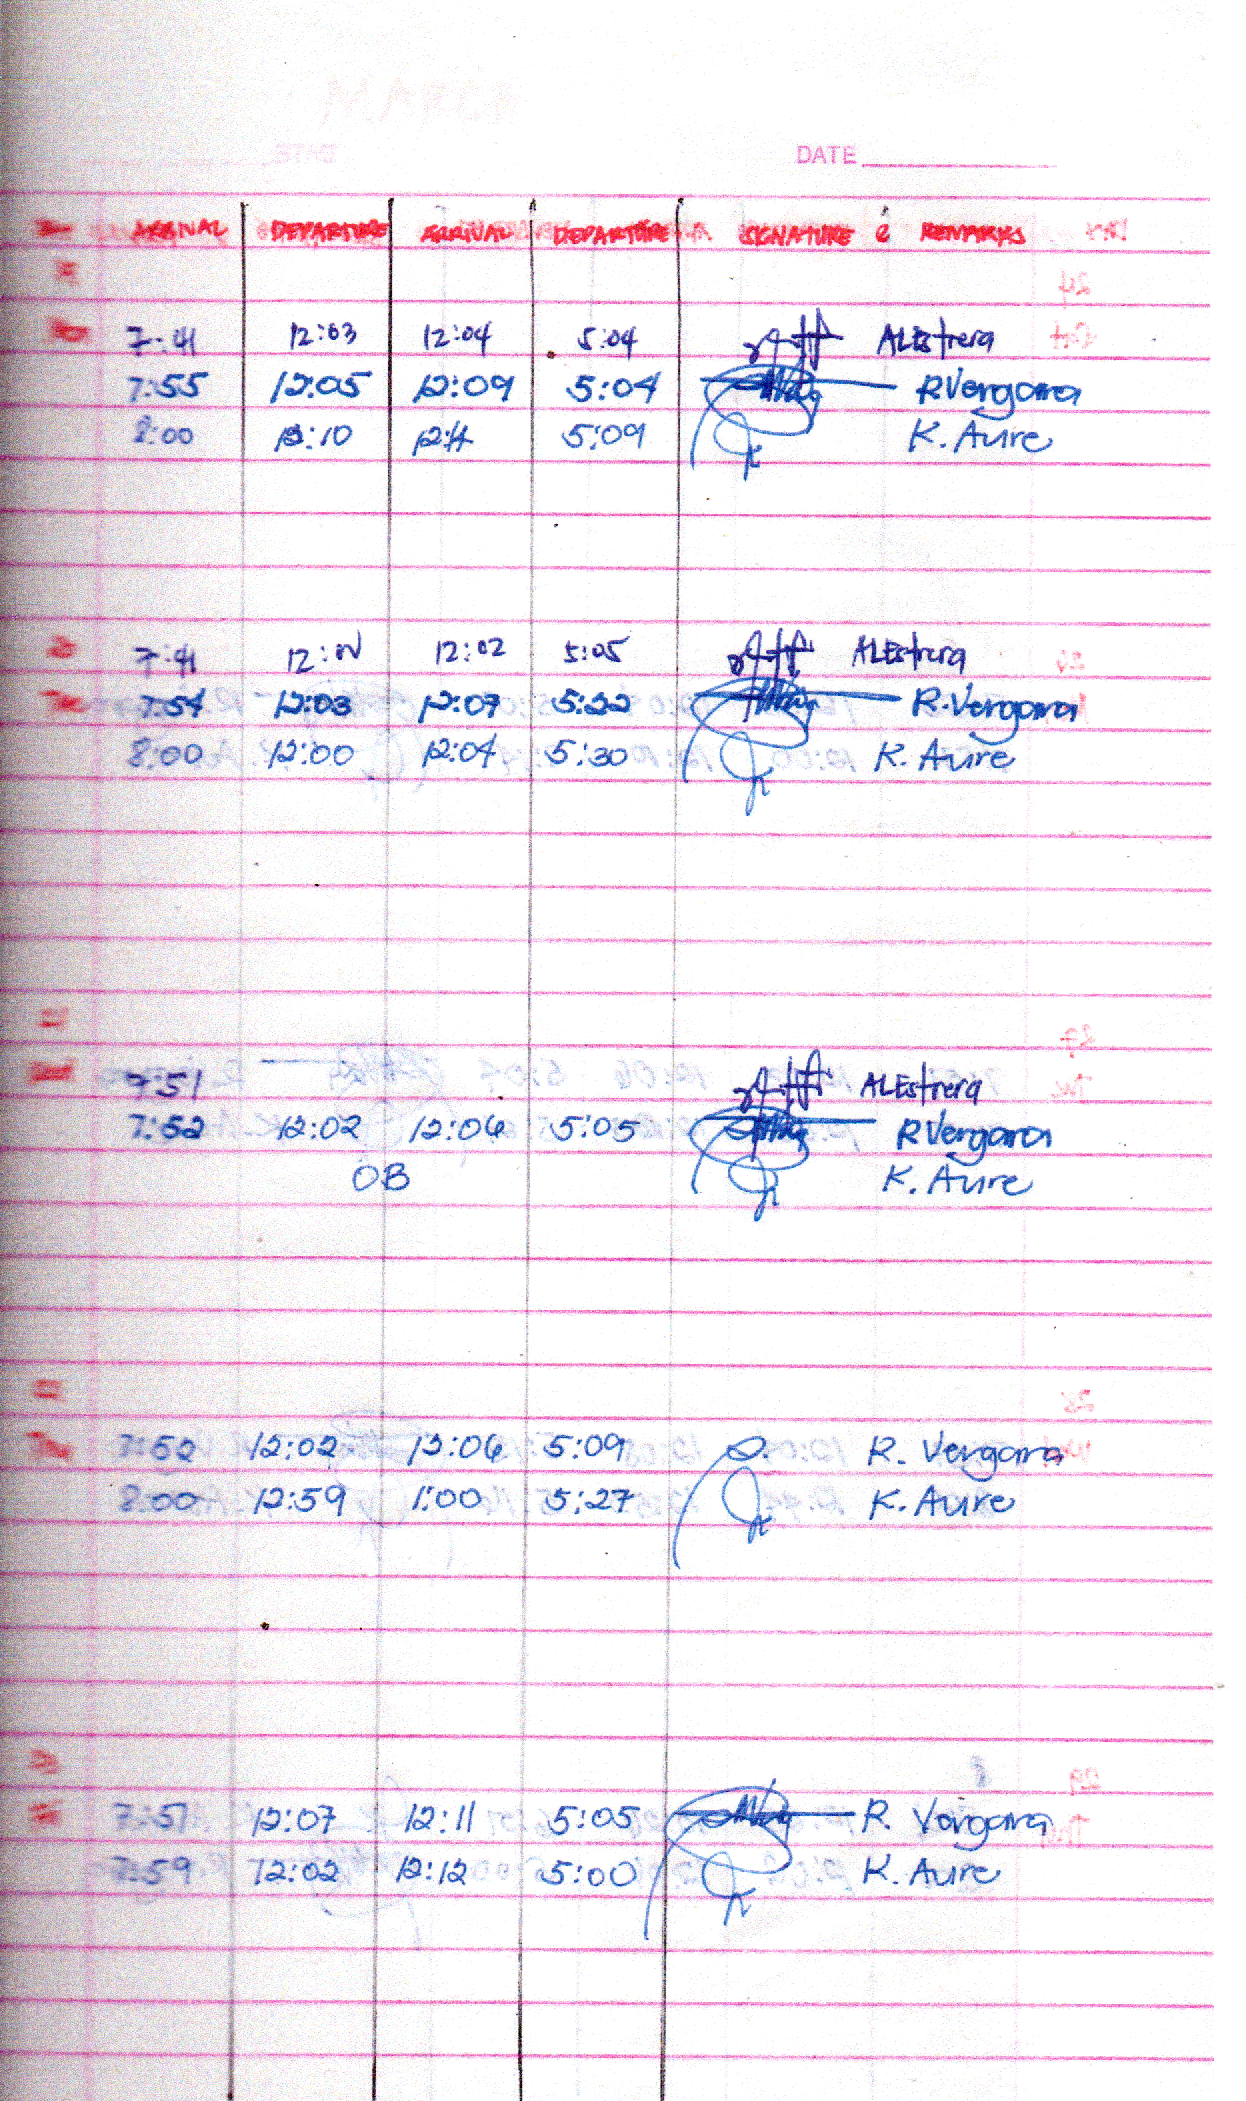 DATE
ARRIVAL DEPARTURE ARRIVAL DEPARTURE SIGNATURE & REMARKS
7:41 12:03 12:04 5:04 ALEstrera
7:55 12:05 12:09 5:04 R Vergara
8:00 12:10 12:11 5:09 K. Aure
7:41 12:01 12:02 5:05 ALEstrera
7:54 12:03 12:07 5:22 R. Vergara
8:00 12:00 12:04 5:30 K. Aure
7:51 ALEstrera
7:52 12:02 12:06 5:05 R Vergara
OB K. Aure
7:52 12:02 12:06 5:09 R. Vergara
8:00 12:59 1:00 5:27 K. Aure
7:57 12:07 12:11 5:05 R. Vergara
7:59 12:02 12:12 5:00 K. Aure